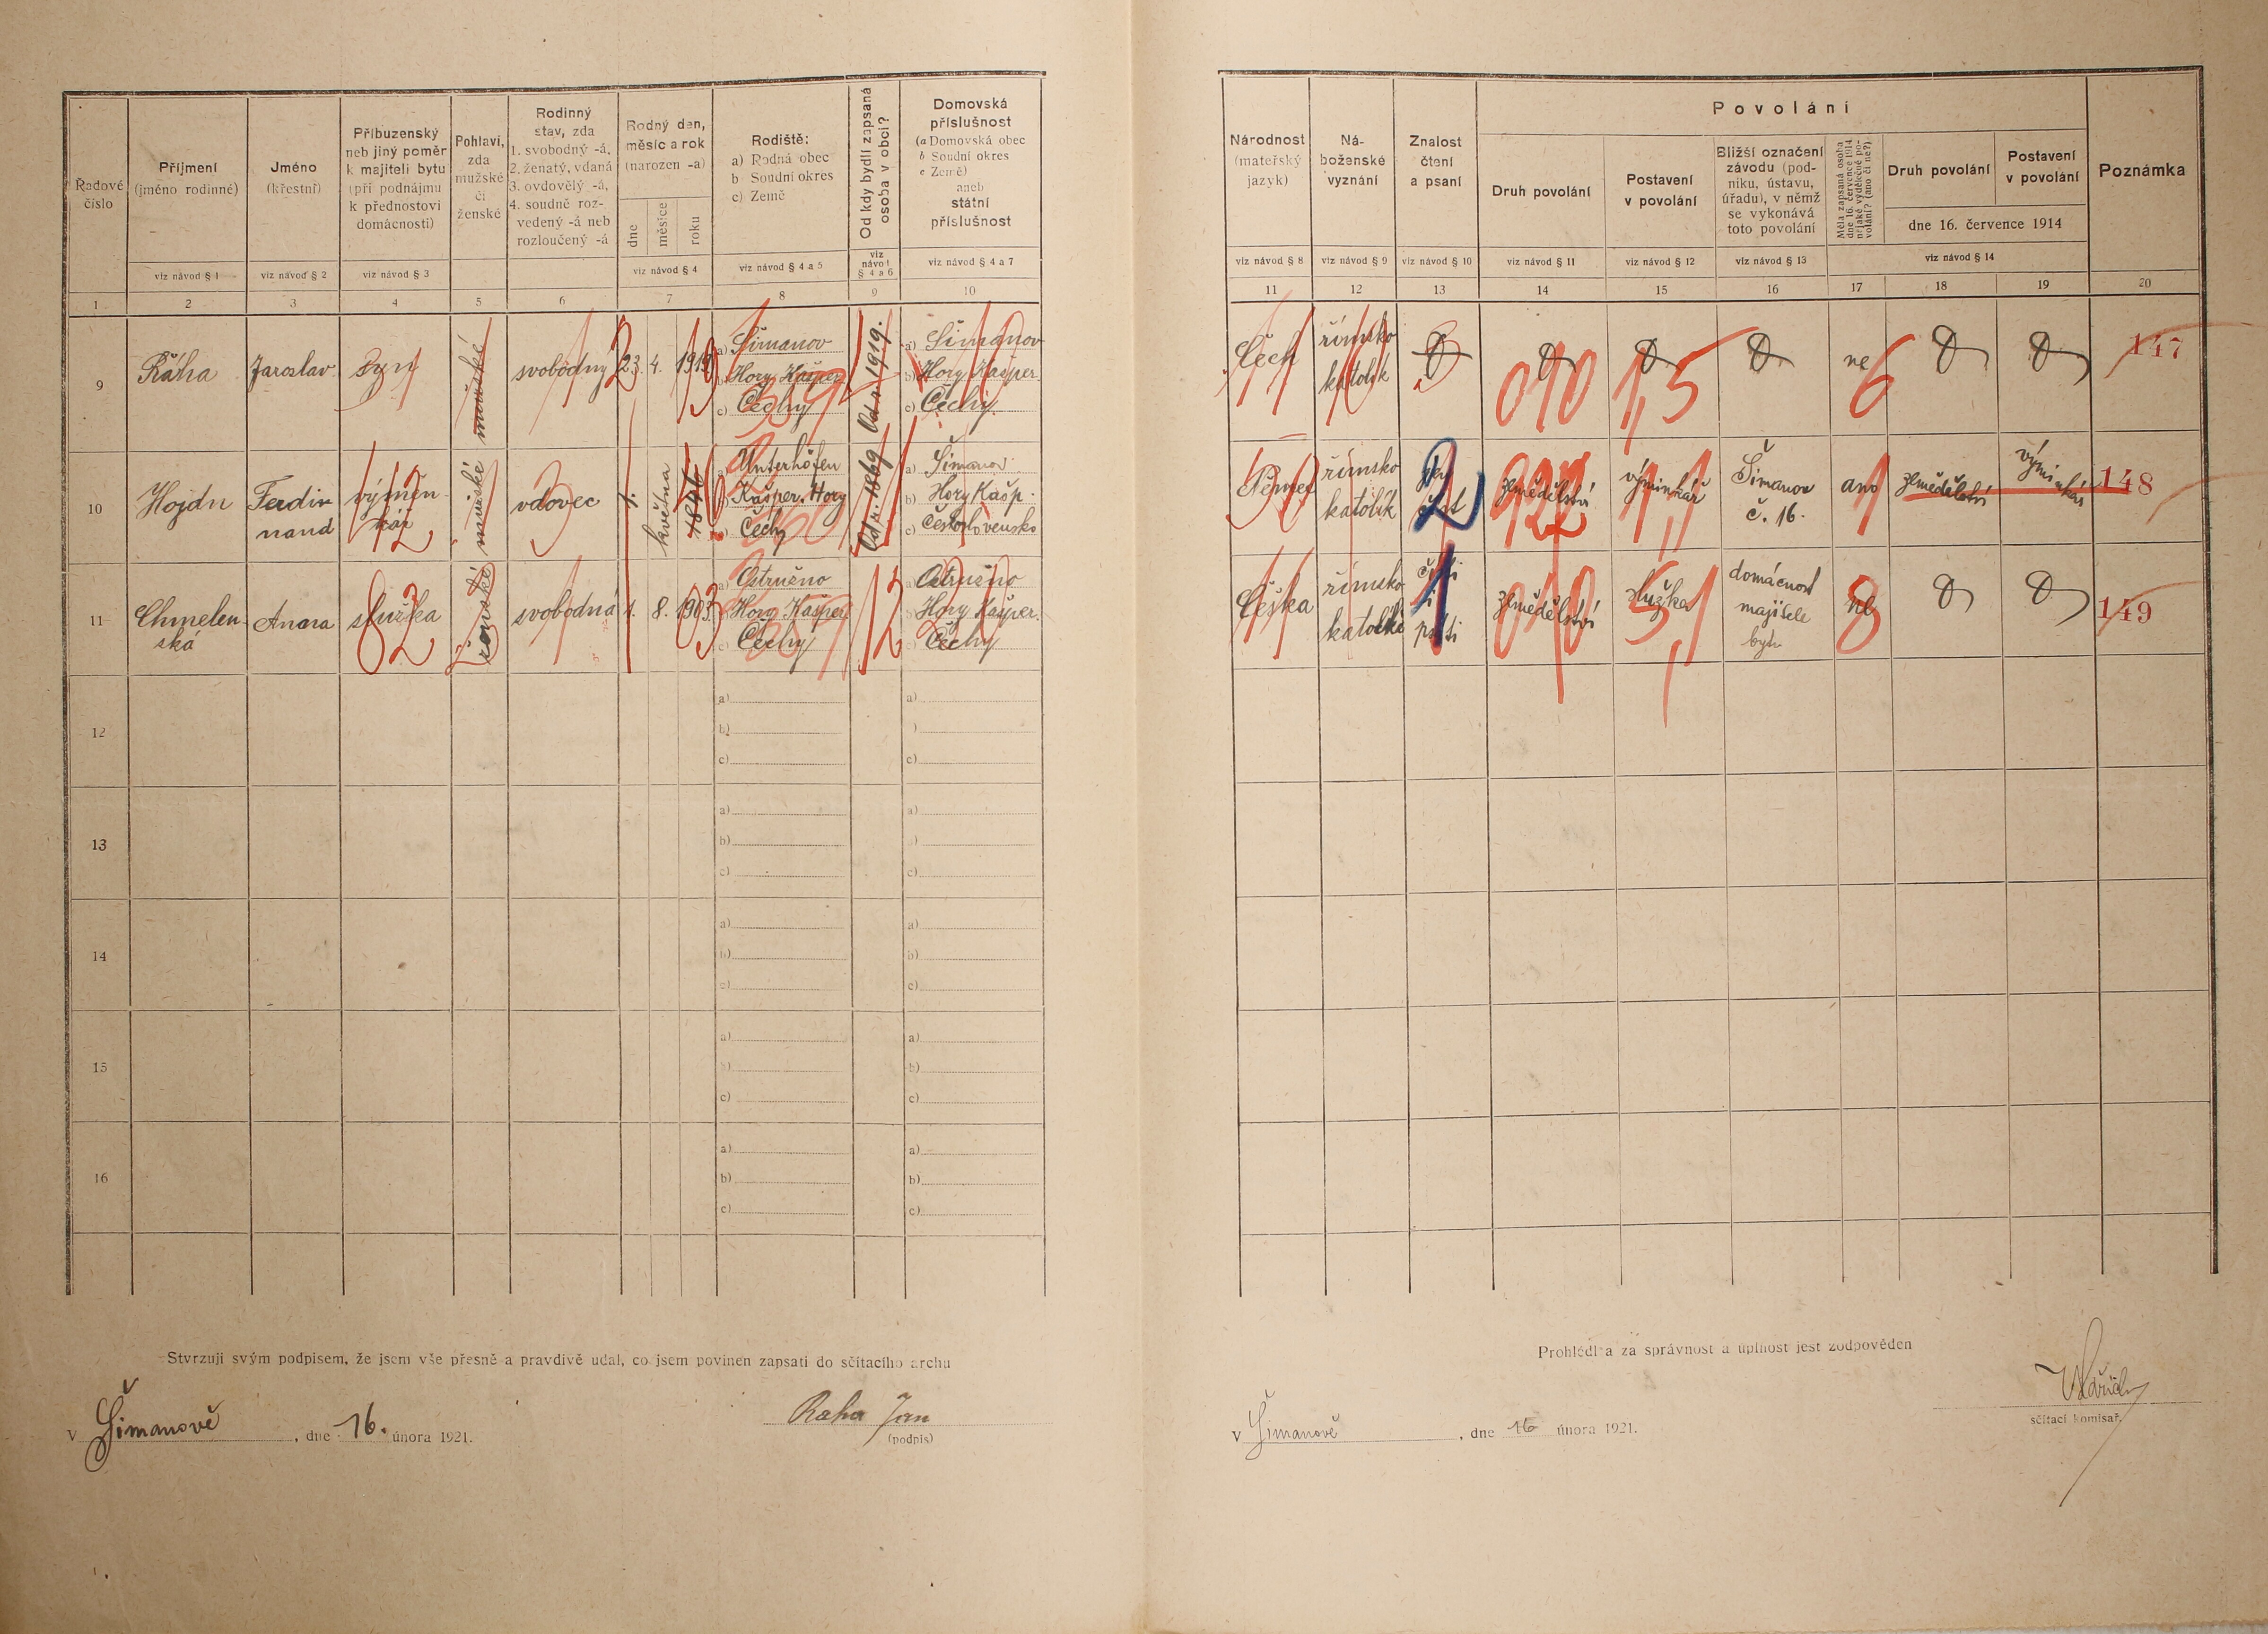 Řadové
číslo
Příjmení
(jméno rodinné)
viz návod § 1
Jméno
(křestní)
viz návod § 2
Příbuzenský
neb jiný poměr
k majiteli bytu
(při podnájmu
k přednostovi
domácnosti)
viz návod § 3
Pohlaví,
zda
mužské
či
ženské
Rodinný
stav, zda
1. svobodný -á,
2. ženatý, vdaná
3. ovdovělý -á,
4. soudně roz-
vedený -á neb
rozloučený -á
Rodný den,
měsíc a rok
(narozen -a)
dne
měsíce
roku
viz návod § 4
Rodiště:
a) Rodná obec
b Soudní okres
c) Země
viz návod § 4 a 5
Od kdy bydlí zapsaná
osoba v obci?
viz
návod
§ 4 a 6
Domovská
příslušnost
(a Domovská obec
b Soudní okres
c Země)
aneb
státní
příslušnost
viz návod § 4 a 7
1 2 3 4 5 6 7 8 9 10
9 Ráha Jaroslav syn mužské svobodný 23. 4. 1919
a) Šimanov
b) Hory Kašper.
c) Čechy
Od r. 1919.
a) Šimanov
b) Hory Kašper.
c) Čechy
10 Hojdn Ferdin
nand
výměn-
kář
mužské
vdovec
1. května 1846
a) Unterhöfen
Kašper. Hory
Čechy
Od r. 1869
a) Šimanov
b) Hory Kašp.
c) Československo
11 Chmelen-
ská
Anna
služka
ženské
svobodná
1. 8. 1903.
a) Ostružno
Hory Kašper
c) Čechy
a) Ostružno
Hory Kašper.
Čechy
12
a)
b)
c)
a)
)
c)
13
a)
b)
c)
a)
)
c)
14
a)
b)
c)
a)
b)
c)
15
a)
b)
c)
a)
b)
c)
16
a)
b)
c)
a)
b)
c)
Stvrzuji svým podpisem, že jsem vše přesně a pravdivě udal, co jsem povinen zapsati do sčítacího archu
v Šimanově , dne 16. února 1921.
Raha Jan
(podpis)
Národnost
(mateřský
jazyk)
viz návod § 8
Ná-
boženské
vyznání
viz návod § 9
Znalost
čtení
a psaní
viz návod § 10
Povolání
Druh povolání
viz návod § 11
Postavení
v povolání
viz návod § 12
Bližší označení
závodu (pod-
niku, ústavu,
úřadu), v němž
se vykonává
toto povolání
viz návod § 13
Měla zapsaná osoba
dne 16. července 1914
nějaké výdělečné po-
volání? (ano či ne?)
Druh povolání
Postavení
v povolání
dne 16. července 1914
viz návod § 14
Poznámka
11 12 13 14 15 16 17 18 19 20
Čech
římsko
katolík
010
1,5
ne
6
147
Němec
římsko
katolík
2
zemědělství
výminkář
1,1
Šimanov
č. 16.
ano
1
zemědělství
výminkář
148
Češka
římsko
1
zemědělství
010
služka
5,1
domácnost
majitele
bytu
ne
8
149
Prohlédl a za správnost a úplnost jest zodpověden
v Šimanově , dne 16 února 1921.
sčítací komisař.